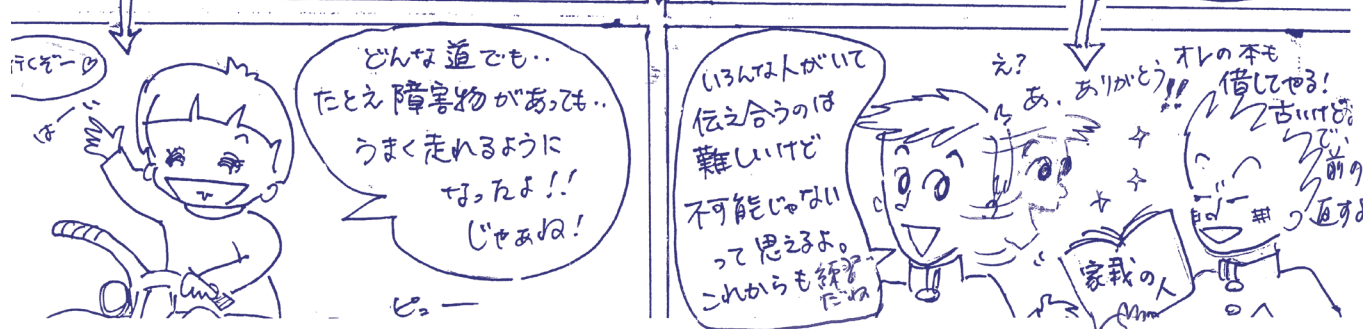 行くぞー♡
はーい
どんな道でも‥
たとえ障害物があっても‥
うまく走れるように
なったよ!!
じゃぁね!
ピューー
いろんな人がいて
伝え合うのは
難しいけど
不可能じゃない
って思えるよ。
これからも練習
だね
え?
あ、ありがとう!!
オレの本も
借してやる!
古いけど。
で、
前の
直すよ
家栽の人